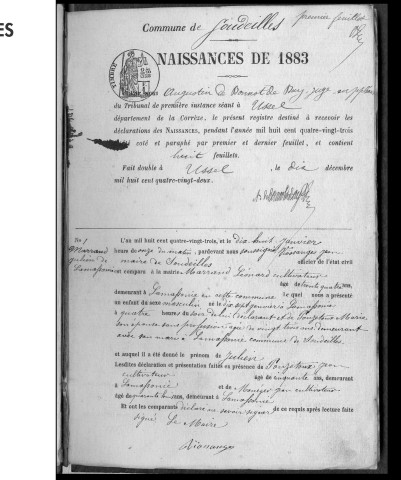 ES
Commune de Soudeilles
premier feuillet
NAISSANCES DE 1883
Nous Augustin juge
du Tribunal de première instance séant à Ussel
département de la Corrèze, le présent registre destiné à recevoir les
déclarations des NAISSANCES, pendant l'année mil huit cent quatre-vingt-trois
coté et paraphé par premier et dernier feuillet, et contient
huit feuillets.
Fait double à Ussel, le dix décembre
mil huit cent quatre-vingt-deux.
No 1
Marraud
julien de
Lamassonie
L'an mil huit cent quatre-vingt-trois, et le dix huit janvier
heure de onze du matin, pardevant nous soussigné jean
maire de Soudeilles officier de l'état civil
est comparu à la mairie Marraud Léonard cultivateur
âgé de trente quatre ans,
demeurant à Lamassonie en cette commune Le quel nous a présenté
un enfant du sexe masculin né le dix sept janvier à Lamassonie
à quatre heures du soir de lui déclarant et de Marie
son épouse sans profession âgée de vingt trois ans demeurant
avec son mari à Lamassonie commune de Soudeilles
et auquel il a été donné le prénom de julien
Lesdites déclaration et présentation faites en présence de jean
cultivateur âgé de cinquante ans, demeurant
à Lamassonie et de jean cultivateur
âgé de quarante ans, demeurant à Lamassonie
Et ont les comparants déclaré ne savoir signer de ce requis après lecture faite
signé Le Maire